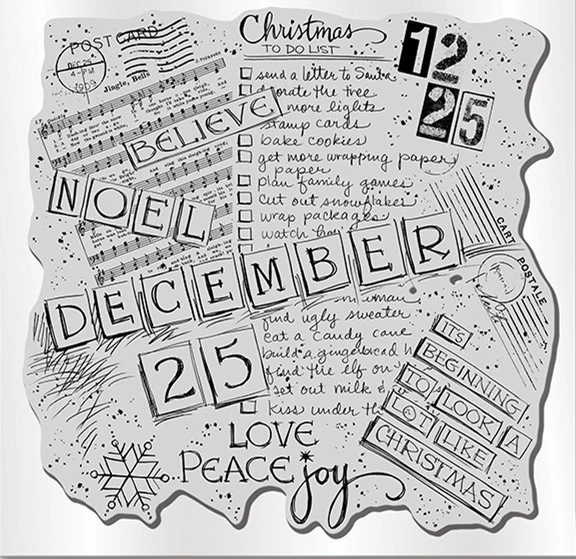 POST CARD
DEC 25
4-PM
1909
Jingle, Bells
J. PIERPONT
BELIEVE
NOEL
Christmas
TO DO LIST
send a letter to Santa
orate the tree
more lights
stamp cards
bake cookies
get more wrapping paper
paper
plan family games
cut out snowflakes
wrap packages
watch
12
25
CARTE POSTALE
DECEMBER
25
find ugly sweater
eat a candy cane
build a gingerbread h
find the elf on
set out milk &
kiss under th
IT'S
BEGINNING
TO LOOK A
LOT LIKE
CHRISTMAS
LOVE
PEACE joy